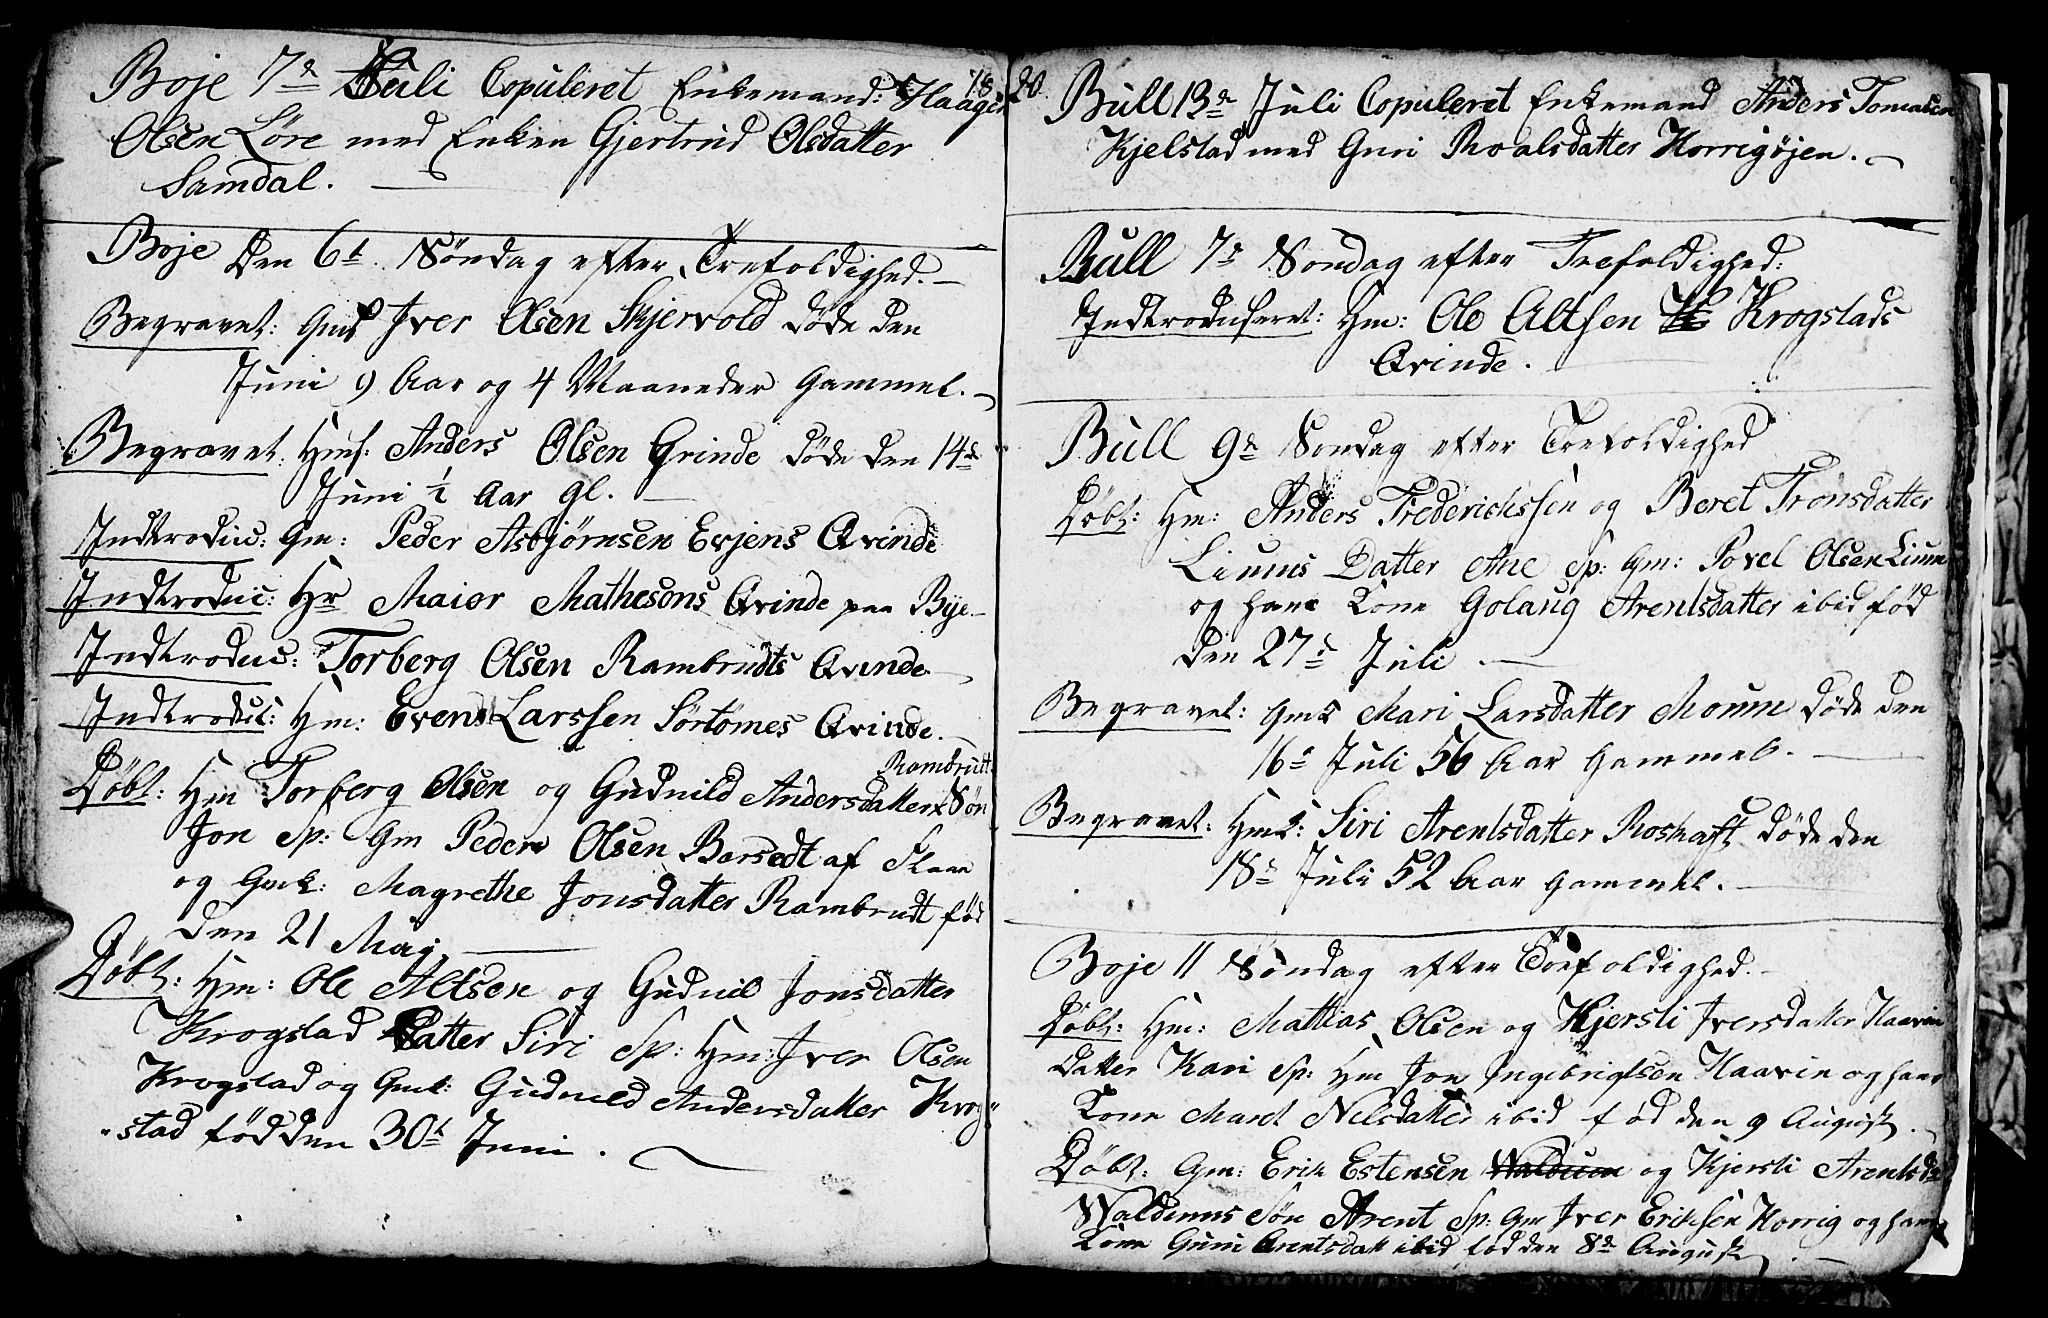 18 20
Boje 7de Juli Copuleret Enkemand: Haagen
Olsen Løre med Enken Gjertrud Olsdatter
Samdal.
Boje Den 6t Søndag efter Trefoldighed.
Begravet: Gms Iver Olsen Skjervold døde den
Juni 9 Aar og 4 Maaneder Gammel.
Begravet: Hms: Anders Olsen Grinde døde den 14de
Juni ½ Aar gl.
Indtroduc: Gm: Peder Asbjørnsen Evjens Qvinde
Indtroduc: Hr Maior Mathesons Qvinde paa Bye
Indtroduc: Torberg Olsen Rambrudts Qvinde
Indtroduc: Hm: Evend Larssen Sørtømes Qvinde.
Rambrutt
Døbt: Hm Torberg Olsen og Gudnild Andersdatter Søn
Jon Sp: Gm Peder Olsen Borsedt af Flaae
og Gmk: Magrethe Jonsdatter Rambrudt fød
den 21 Maj
Døbt: Hm: Ole Altsen og Gudnil Jonsdatter
Krogstad Datter Siri Sp: Hm: Iver Olsen
Krogstad og Gmk: Gudnild Andersdatter Krog
stad fød den 30t Juni.
Bull 13de Juli Copuleret Enkemand Anders Tomasen
Kjelstad med Guri Roalsdatter Horrigøjen.
Bull 7de Søndag efter Trefoldighed:
Indtroduseret: Hm: Ole Altsen Krogstads
Qvinde.
Bull 9de Søndag efter Trefoldighed
Døbt: Hm: Anders Frederichssen og Beret Tronsdatter
Liums Datter Ane Sp: Gm: Povel Olsen Lium
og hans Kone Golaug Arentsdatter ibid fød
den 27de Juli
Begravet: Gmk Mari Larsdatter Moum døde den
16de Juli 56 Aar Gammel.
Begravet: Hmk: Siri Arentsdatter Roshaft døde den
18de Juli 52 Aar Gammel.
Boje 11 Søndag efter Trefoldighed.
Døbt: Hm: Mattias Olsen og Kjersti Iversdatter Haavin
Datter Kari Sp: Hm Jon Ingebrigtsen Haavin og hans
Kone Maret Nilsdatter ibid fød den 9 August.
Døbt: Gm: Erik Estensen Waldum og Kjersti Arentsda
Waldums Søn Arent Sp: Gm Iver Eriksen Horrig og hans
Kone Guru Arentsdatt ibid fød den 8de August.